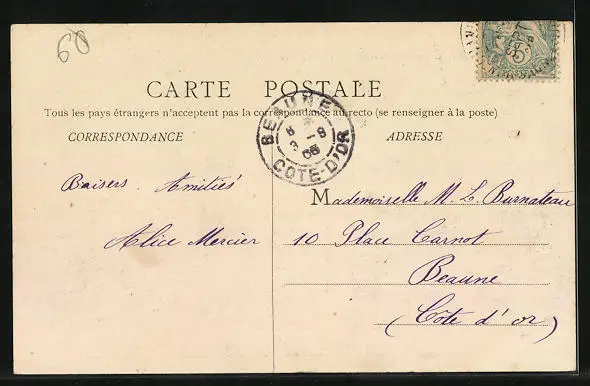 60
5
CARTE POSTALE
Tous les pays étrangers n'acceptent pas la correspondance au recto (se renseigner à la poste)
CORRESPONDANCE
ADRESSE
BEAUNE
8
3 - 9
05
COTE-D'OR
Baisers. Amitiés
Alice Mercier
Mademoiselle M. L. Burnateau
10 Place Carnot
Beaune
(Côte d'or)